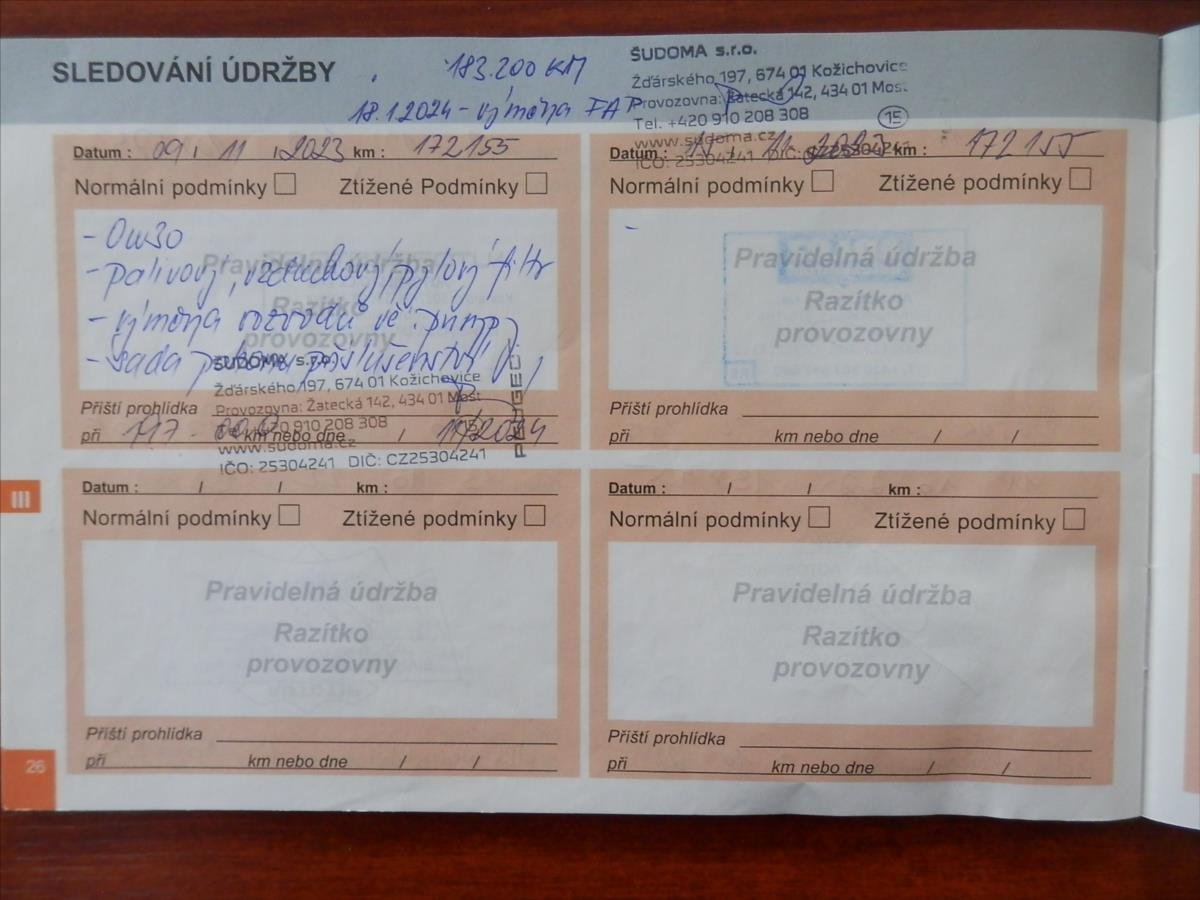 SLEDOVÁNÍ ÚDRŽBY
183.200 KM
18.1.2024 - výměna FAP
ŠUDOMA s.r.o.
Žďárského 197, 674 01 Kožichovice
Provozovna: Žatecká 142, 434 01 Most
Tel. +420 910 208 308
15
www.sudoma.cz
IČO: 25304241 DIČ: CZ25304241
Datum : 09 / 11 / 2023 km : 172155
Normální podmínky Ztížené Podmínky
- 0W30
- palivový, vzduchový, pylový filtr
- výměna rozvodů vč. pumpy
- sada příslušenství
Pravidelná údržba
Razítko
provozovny
ŠUDOMA s.r.o.
Žďárského 197, 674 01 Kožichovice
Provozovna: Žatecká 142, 434 01 Most
+420 910 208 308
15
www.sudoma.cz
IČO: 25304241 DIČ: CZ25304241
PEUGEOT
Přiští prohlídka
při 197 000 km nebo dne / 11/2024
Datum : / / km : 172155
Normální podmínky Ztížené podmínky
-
Pravidelná údržba
Razítko
provozovny
Přiští prohlídka
při km nebo dne / /
III
Datum : / / km :
Normální podmínky Ztížené podmínky
Pravidelná údržba
Razítko
provozovny
Přiští prohlídka
při km nebo dne / /
Datum : / / km :
Normální podmínky Ztížené podmínky
Pravidelná údržba
Razítko
provozovny
Přiští prohlídka
při km nebo dne / /
26